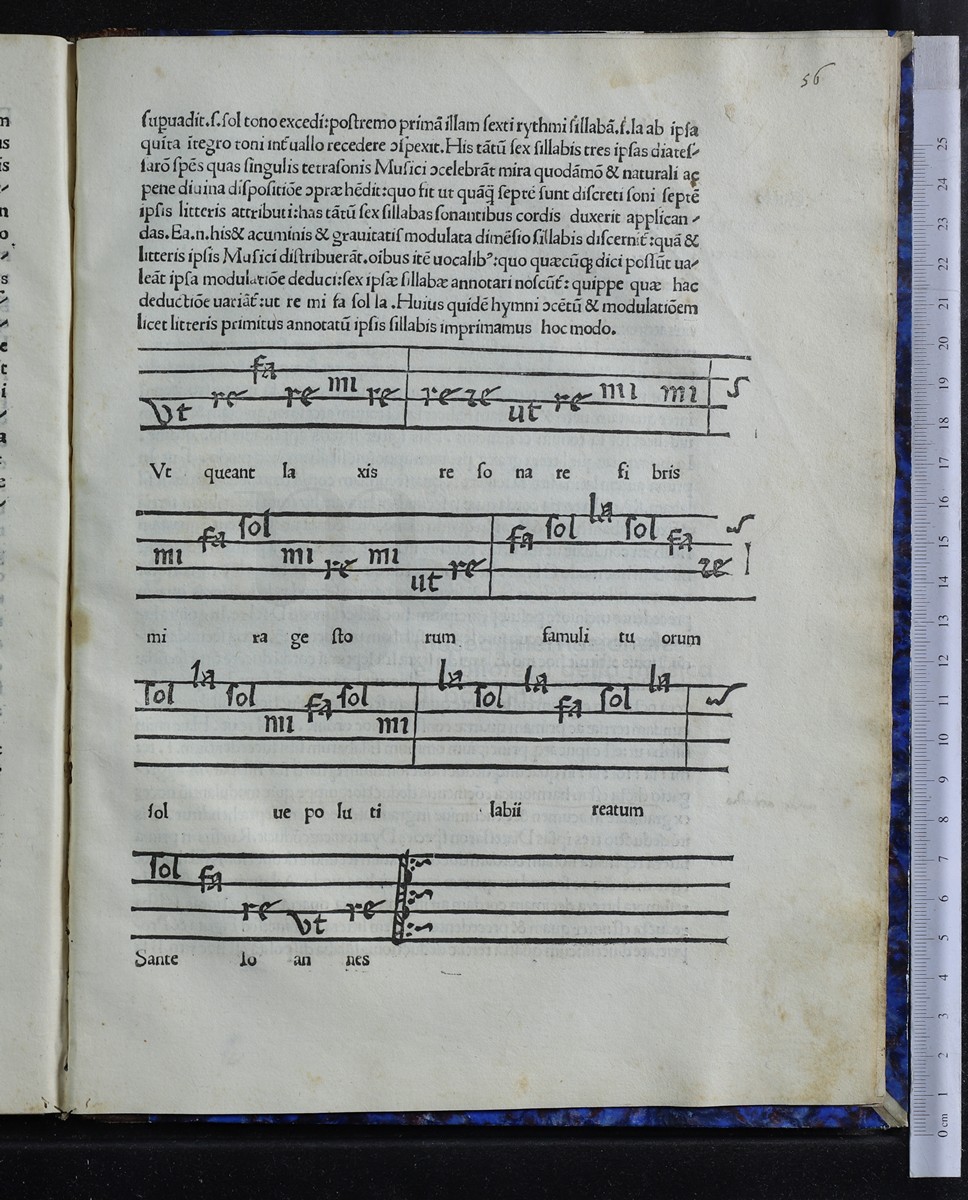 56
supuadit.s.sol tono excedi:postremo primā illam sexti rythmi sillabā.s.la ab ipsa
quīta ītegro toni int̄uallo recedere ↄspexit. His tātū sex sillabis tres ipsas diates⸗
sarō sp̄es quas singulis tetrasonis Musici ↄcelebrāt mira quodāmō & naturali ac
pene diuina dispositiōe ↄpræhēdit:quo fit ut quāq̄ septē sunt discreti soni septē
ipsis litteris attributi:has tātū sex sillabas sonantibus cordis duxerit applican⸗
das. Ea.n.his& acuminis & grauitatis modulata dimēsio sillabis discernit̄:quā &
litteris ipsis Musici distribuerāt.oibus itē uocalibꝰ:quo quæcūq; dici possūt ua⸗
leāt ipsa modulatiōe deduci:sex ipsæ sillabæ annotari noscūt̄: quippe quæ hac
deductiōe uariāt̄:ut re mi fa sol la .Huius quidē hymni ↄcētū & modulatiōem
licet litteris primitus annotatū ipsis sillabis imprimamus hoc modo.
Vt re fa re mi re re re ut re mi mi
Vt queant la xis re so na re fi bris
mi fa sol mi re mi ut re fa sol la sol fa re
mi ra ge sto rum famuli tu orum
sol la sol mi fa sol mi la sol la fa sol la
sol ue po lu ti labii reatum
sol fa re Vt re
Sante Io an nes
0 cm 1 2 3 4 5 6 7 8 9 10 11 12 13 14 15 16 17 18 19 20 21 22 23 24 25